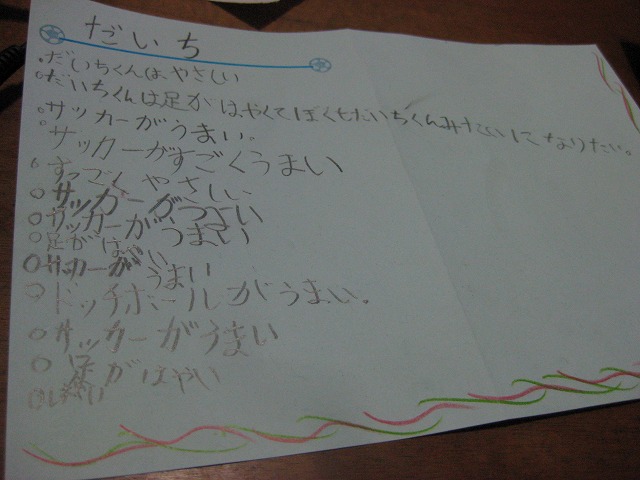 だいち
だいちくんはやさしい
だいちくんは足がはやくてぼくもだいちくんみたいになりたい。
サッカーがうまい。
サッカーがすごくうまい
すっごくやさしい
サッカーがつよい
サッカーがうまい
足がはやい
サッカーがうまい
ドッチボールがうまい。
サッカーがうまい
足がはやい